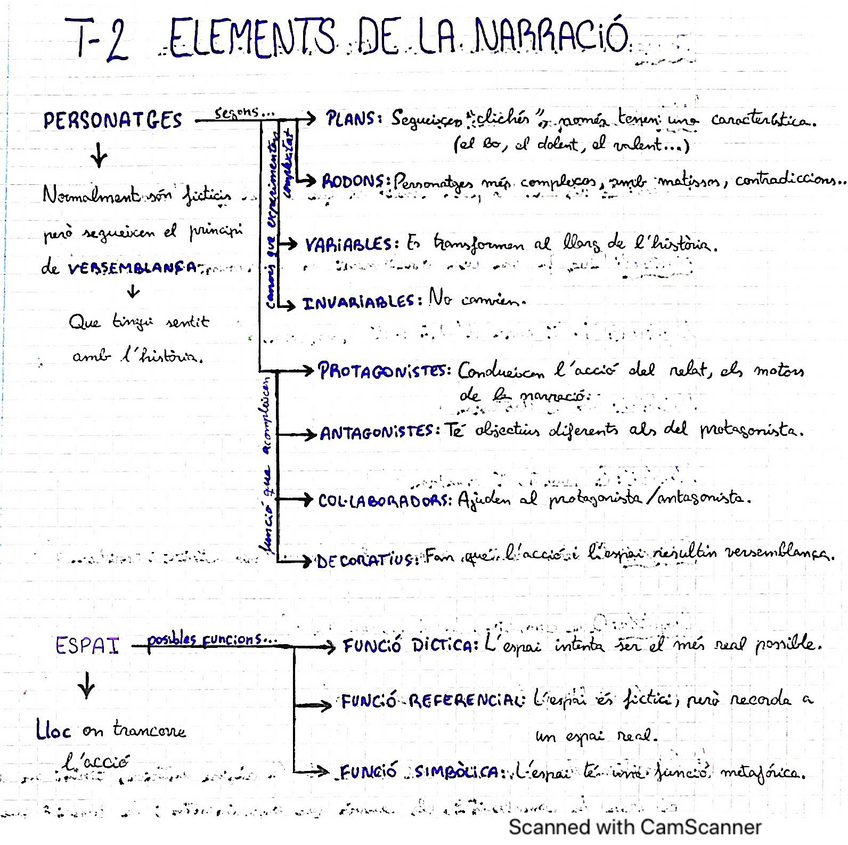 T-2 ELEMENTS DE LA NARRACIÓ
PERSONATGES segons...
Normalment són ficticis
però segueixen el principi
de VERSEMBLANÇA
Que tingui sentit
amb l'història.
complexitat
PLANS: Segueixen "clichés", només tenen una característica.
(el bo, el dolent, el valent...)
RODONS: Personatges més complexos, amb matissos, contradiccions..
canvis que experimenten
VARIABLES: Es transformen al llarg de l'història.
INVARIABLES: No canvien.
funció que acompleixen
PROTAGONISTES: Condueixen l'acció del relat, els motors
de la narració.
ANTAGONISTES: Té objectius diferents als del protagonista.
COL·LABORADORS: Ajuden al protagonista/antagonista.
DECORATIUS: Fan que l'acció i l'espai resultin versemblança.
ESPAI posibles funcions...
Lloc on trancorre
l'acció
FUNCIÓ DÍCTICA: L'espai intenta ser el més real possible.
FUNCIÓ REFERENCIAL: L'espai és fictici, però recorda a
un espai real.
FUNCIÓ SIMBÒLICA: L'espai té una funció metafórica.
Scanned with CamScanner